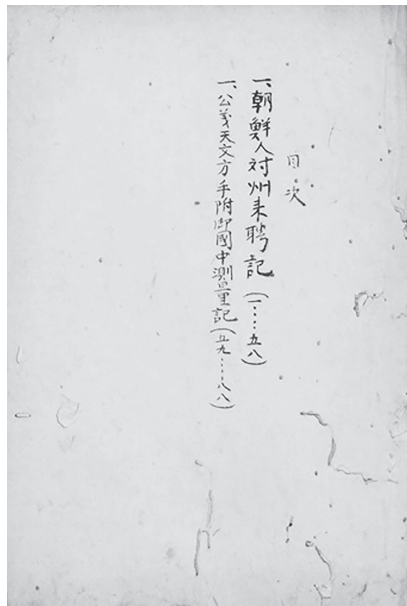 目次
一、朝鮮人対州来聘記(一‥‥五八)
一、公義天文方手附御國中測量里記(五九‥‥八八)